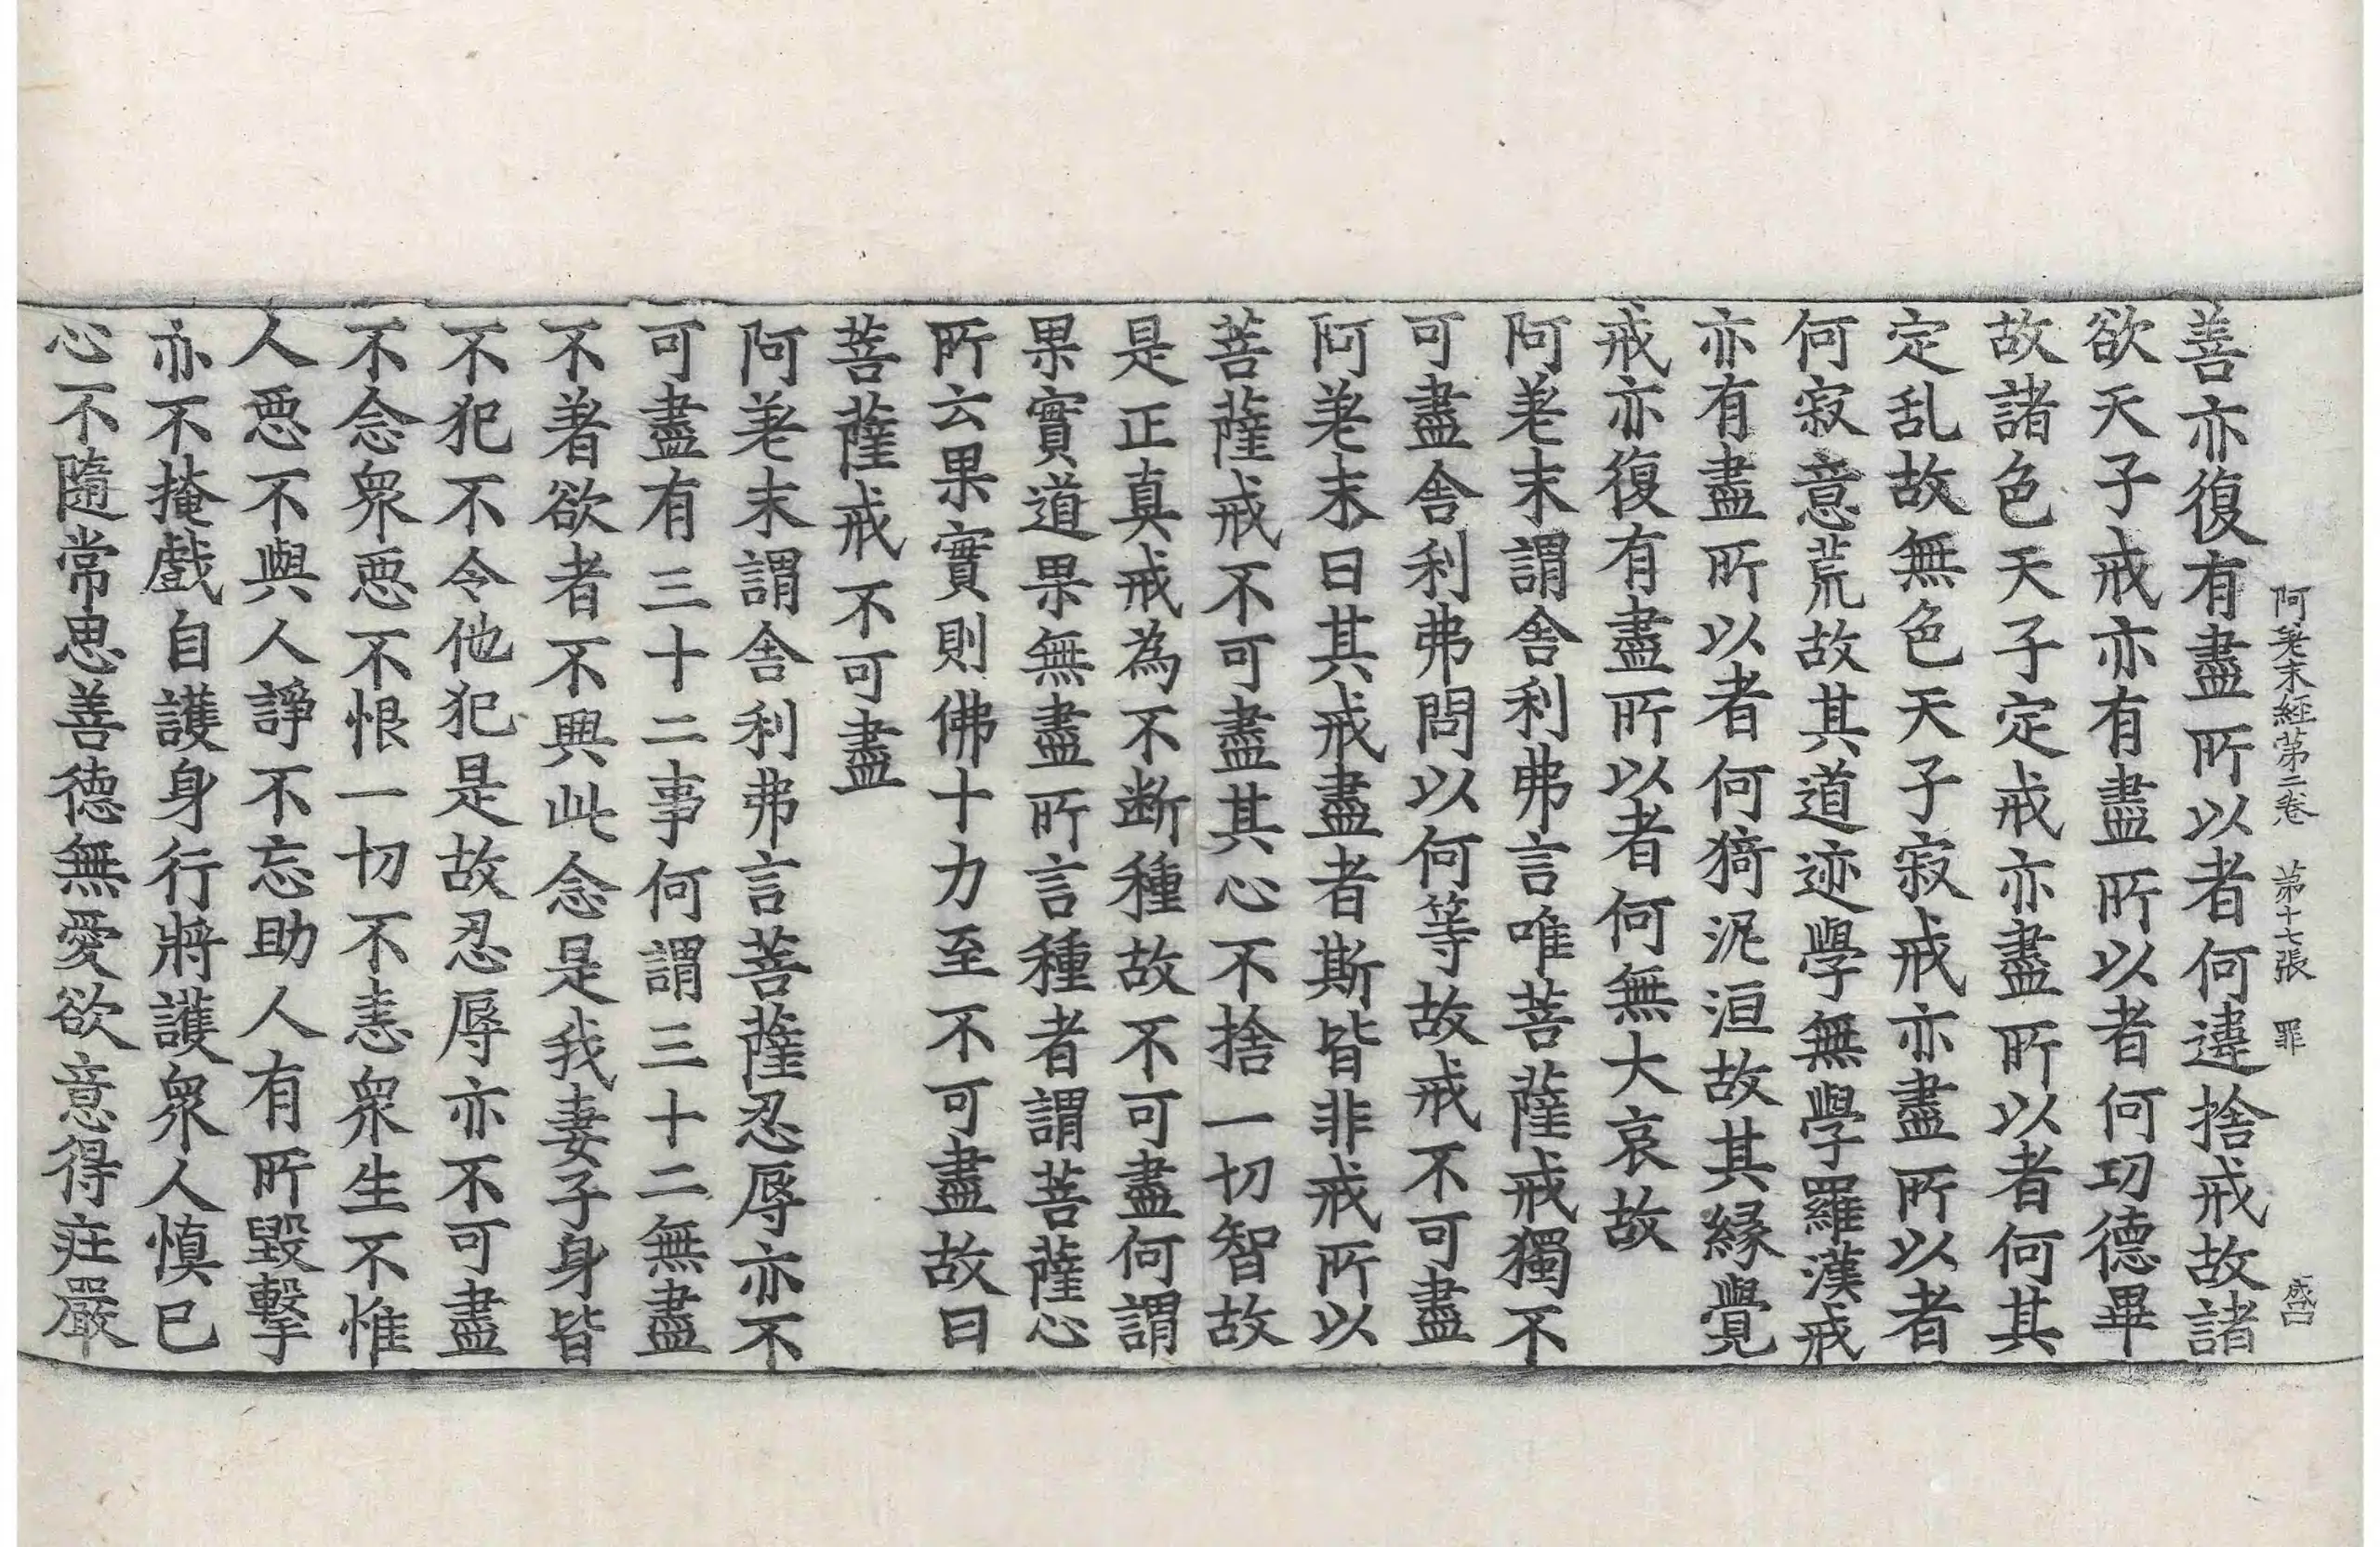 阿差末經第二卷　第十七張　罪
善亦復有盡所以者何違捨戒故諸
欲天子戒亦有盡所以者何功德畢
故諸色天子定戒亦盡所以者何其
定乱故無色天子寂戒亦盡所以者
何寂意荒故其道迹學無學羅漢戒
亦有盡所以者何猗泥洹故其緣覺
戒亦復有盡所以者何無大哀故
阿差末謂舍利弗言唯菩薩戒獨不
可盡舍利弗問以何等故戒不可盡
阿差末曰其戒盡者斯皆非戒所以
菩薩戒不可盡其心不捨一切智故
是正真戒為不断種故不可盡何謂
果實道果無盡所言種者謂菩薩心
所云果實則佛十力至不可盡故曰
菩薩戒不可盡
阿差末謂舍利弗言菩薩忍辱亦不
可盡有三十二事何謂三十二無盡
不著欲者不興此念是我妻子身皆
不犯不令他犯是故忍辱亦不可盡
不念衆惡不恨一切不恚衆生不惟
人惡不與人諍不忘助人有所毀擊
亦不掩戲自護身行將護衆人慎已
心不隨常思善德無愛欲意得莊嚴